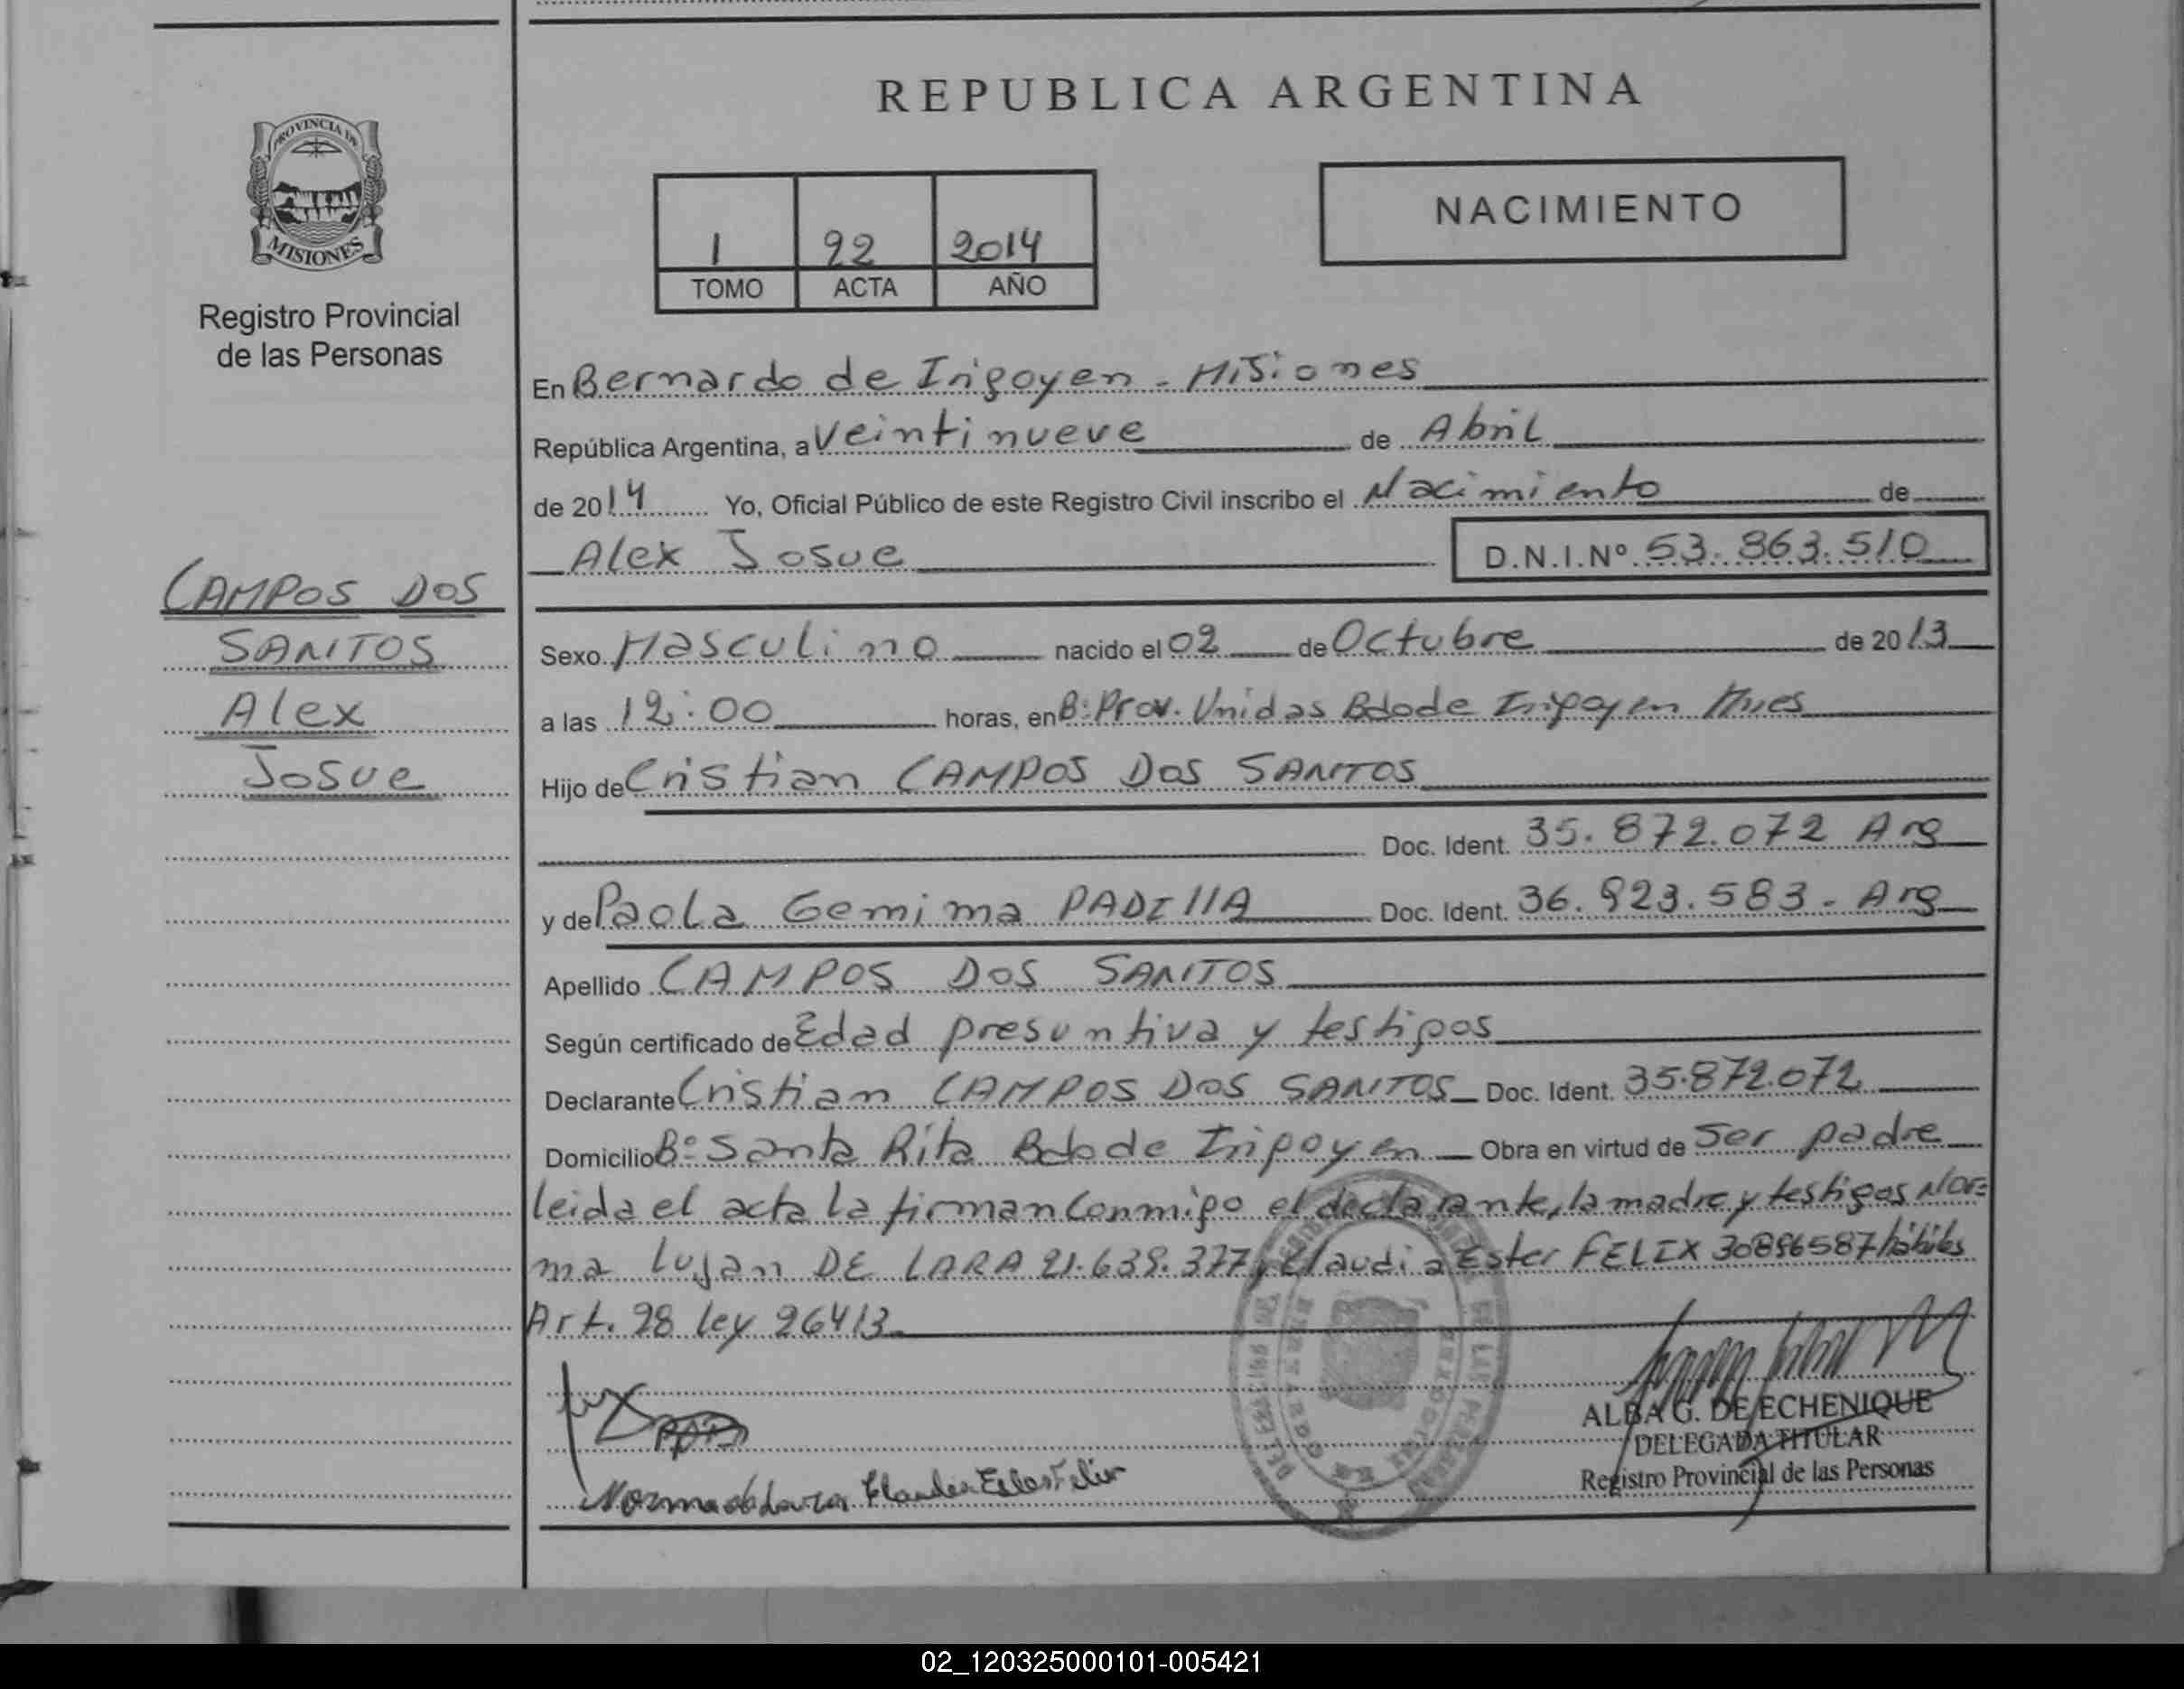 REPUBLICA ARGENTINA
PROVINCIA DE
MISIONES
Registro Provincial
de las Personas
NACIMIENTO
1 92 2014
TOMO ACTA AÑO
En Bernardo de Irigoyen - Misiones
República Argentina, a Veintinueve de Abril
de 2014 Yo, Oficial Público de este Registro Civil inscribo el Nacimiento de
Alex Josue D.N.I.Nº 53.863.510
CAMPOS DOS
SANTOS
Alex
Josue
Sexo Masculino nacido el 02 de Octubre de 2013
a las 12:00 horas, en Bº Prov. Unidas Bdo de Irigoyen Mnes
Hijo de Cristian CAMPOS DOS SANTOS
Doc. Ident. 35.872.072 Arg
y de Paola Gemima PADILLA Doc. Ident. 36.923.583 - Arg
Apellido CAMPOS DOS SANTOS
Según certificado de Edad presuntiva y testigos
Declarante Cristian CAMPOS DOS SANTOS Doc. Ident. 35.872.072
Domicilio Bº Santa Rita Bdo de Irigoyen Obra en virtud de Ser padre
leida el acta la firman Conmigo el declarante, la madre y testigos Nor=
ma Lujan DE LARA 21.639.377 y Claudia Ester FELIX 30896587 hábiles
Art. 28 ley 26413
Norma de Lara Claudia Ester Felix
ALBA G. DE ECHENIQUE
DELEGADA TITULAR
Registro Provincial de las Personas
02_120325000101-005421